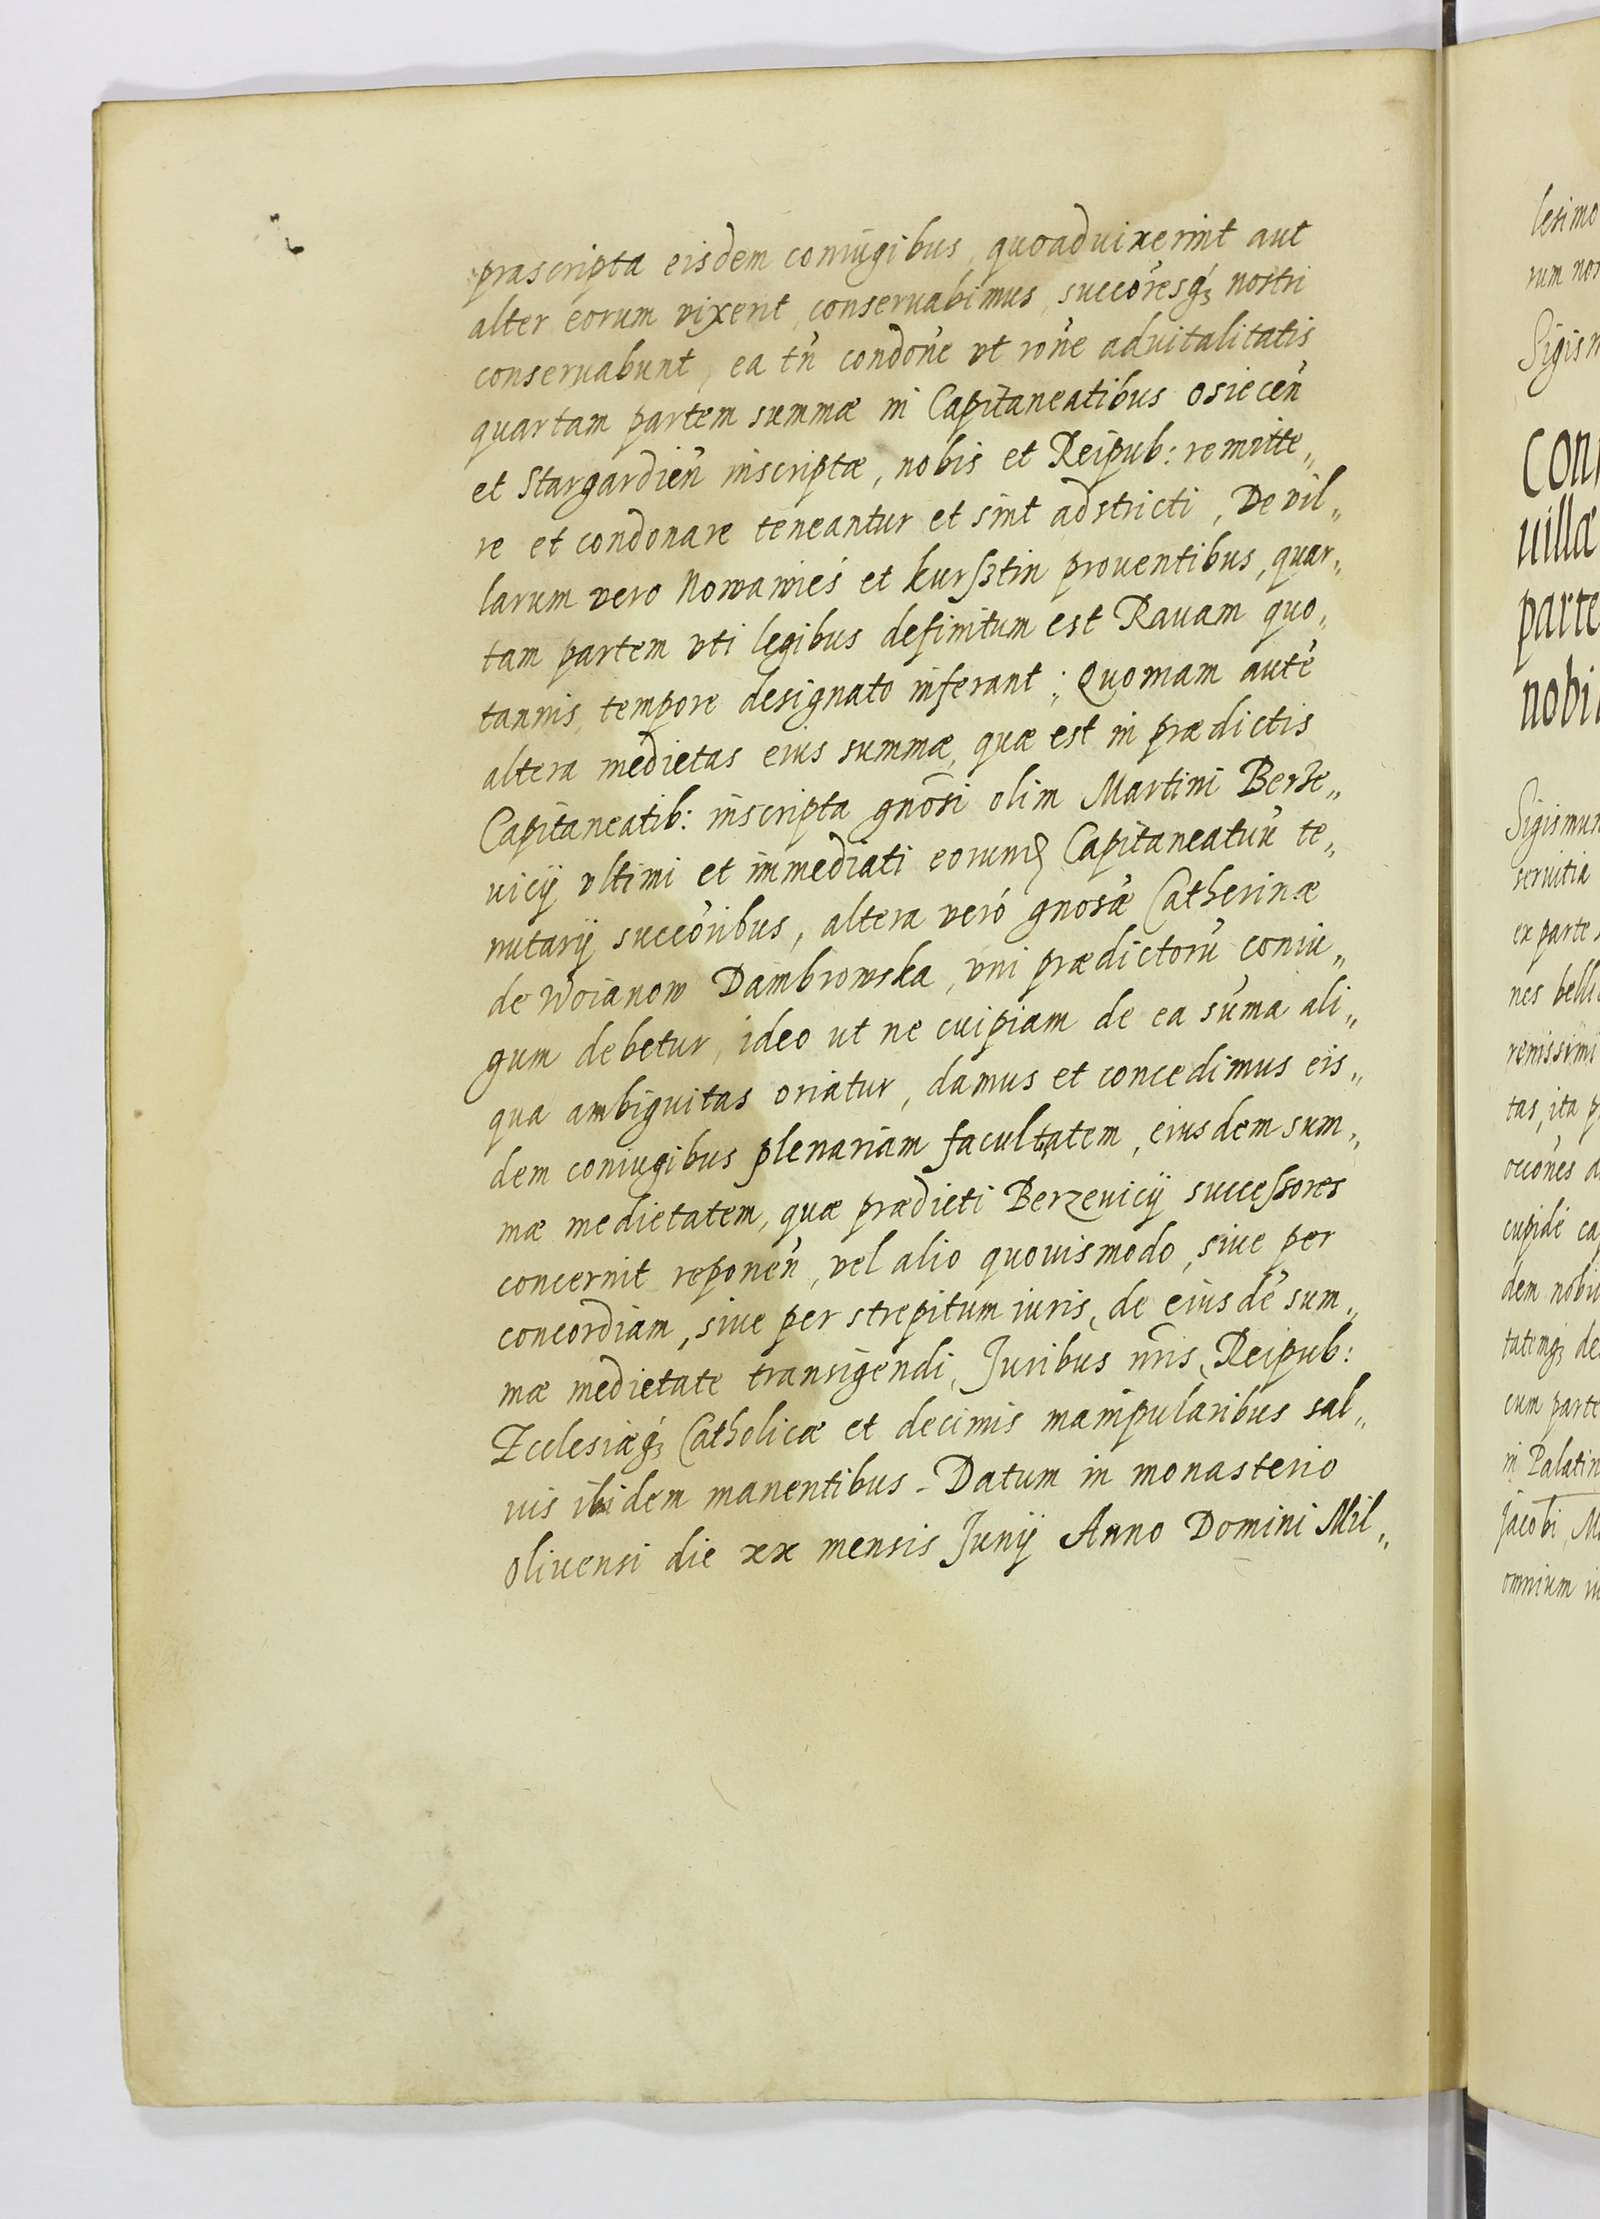 præscripta eisdem coniugibus, quoaduixerint aut
alter eorum vixerit, conservabimus, succo͞resq́ꝫ nostri
conseruabunt, ea tn̄ condo͞ne vt ro͞ne aduitalitatis
quartam partem summæ in Capitaneatibus Osiecen̄
et Stargardien̄ inscriptæ, nobis et Reipub: remitte„
re et condonare teneantur et sint adstricti, De vil„
larum vero Nowawies et kurſʒtin prouentibus, quar„
tam partem vti legibus definitum est Rauam quo„
tannis, tempore designato inferant; Quoniam aute͞
altera medietas eius summæ, quæ est in prædictis
Capitaneatib: inscripta gno͞si olim Martini Berze„
uicij vltimi et immediati eorumd Capitaneatuū te„
nutarij succo͞ribus, altera veró gnosæ͞ Catherinæ
de Woianow Dambrowska, vni prædictorū coniu„
gum debetur, ideo ut ne cuipiam de ea su͞ma ali„
qua ambiguitas oriatur, damus et concedimus eis„
dem coniugibus plenariam facultatem, eiusdem sum„
mæ medietatem, quæ prædicti Berzeuicij successores
concernit reponen̄, vel alio quouismodo, siue per
concordiam, siue per strepitum iuris, de eiusde͞ sum„
mæ medietate transigendi, Juribus nr͞is, Reipub:
Ecclesiæq́ꝫ Catholicæ et decimis manipularibus sal„
uis ibidem manentibus. Datum in monasterio
Oliuensi die xx mensis Junij Anno Domini Mil„
lesimo
rum
Sigism
con
uillæ
parte
nobi
Sigismun
seruitia
ex parte
nes
renissimi
tas, ita
occo͞nes
cupide
dem
tatemqꝫ de
cum parte
in Palatin
Jacobi
omnium